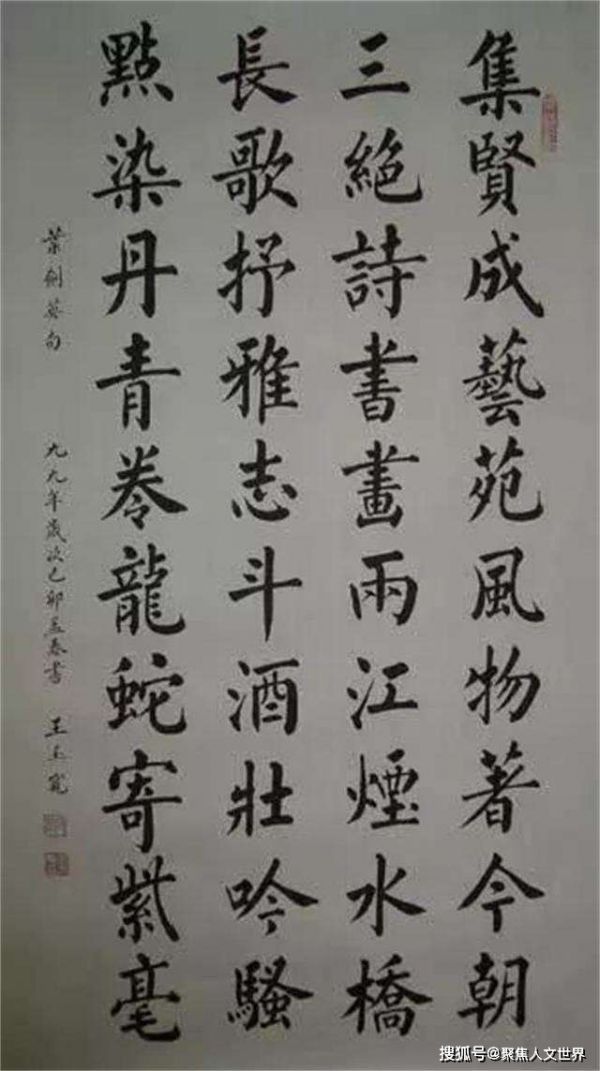 集賢成藝苑風物著今朝
三絕詩書畫兩江煙水橋
長歌抒雅志斗酒壯吟騷
點染丹青卷龍蛇寄紫毫
葉劍英句
九九年歲次己卯孟春書 王玉寬
搜狐号@聚焦人文世界